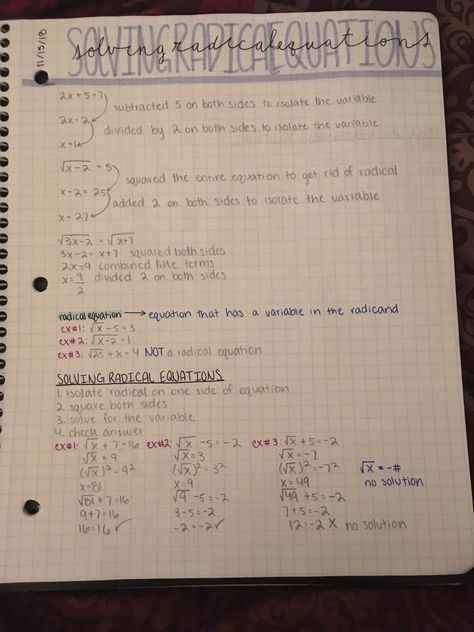 11/15/18
SOLVING RADICAL EQUATIONS
solving radical equations
2x+5=7
subtracted 5 on both sides to isolate the variable
2x=2
divided by 2 on both sides to isolate the variable
x=1
√x-2 = 5
squared the entire equation to get rid of radical
x-2=25
added 2 on both sides to isolate the variable
x=27
√3x-2 = √x+7
3x-2=x+7 squared both sides
2x=9 combined like terms
x=9/2 divided 2 on both sides
radical equation → equation that has a variable in the radicand
ex#1: √x-5=3
ex#2: √x-2=1
ex#3: √25+x=4 NOT a radical equation
SOLVING RADICAL EQUATIONS
1. isolate radical on one side of equation
2. square both sides
3. solve for the variable
4. check answer
ex#1: √x+7=16 ex#2: √x-5=-2 ex#3: √x+5=-2
√x=9 √x=3 √x=-7 √x=-#
(√x)²=9² (√x)²=3² (√x)²=-7² no solution
x=81 x=9 x=49
√81+7=16 √9-5=-2 √49+5=-2
9+7=16 3-5=-2 7+5=-2
16=16✓ -2=-2✓ 12=-2 X no solution